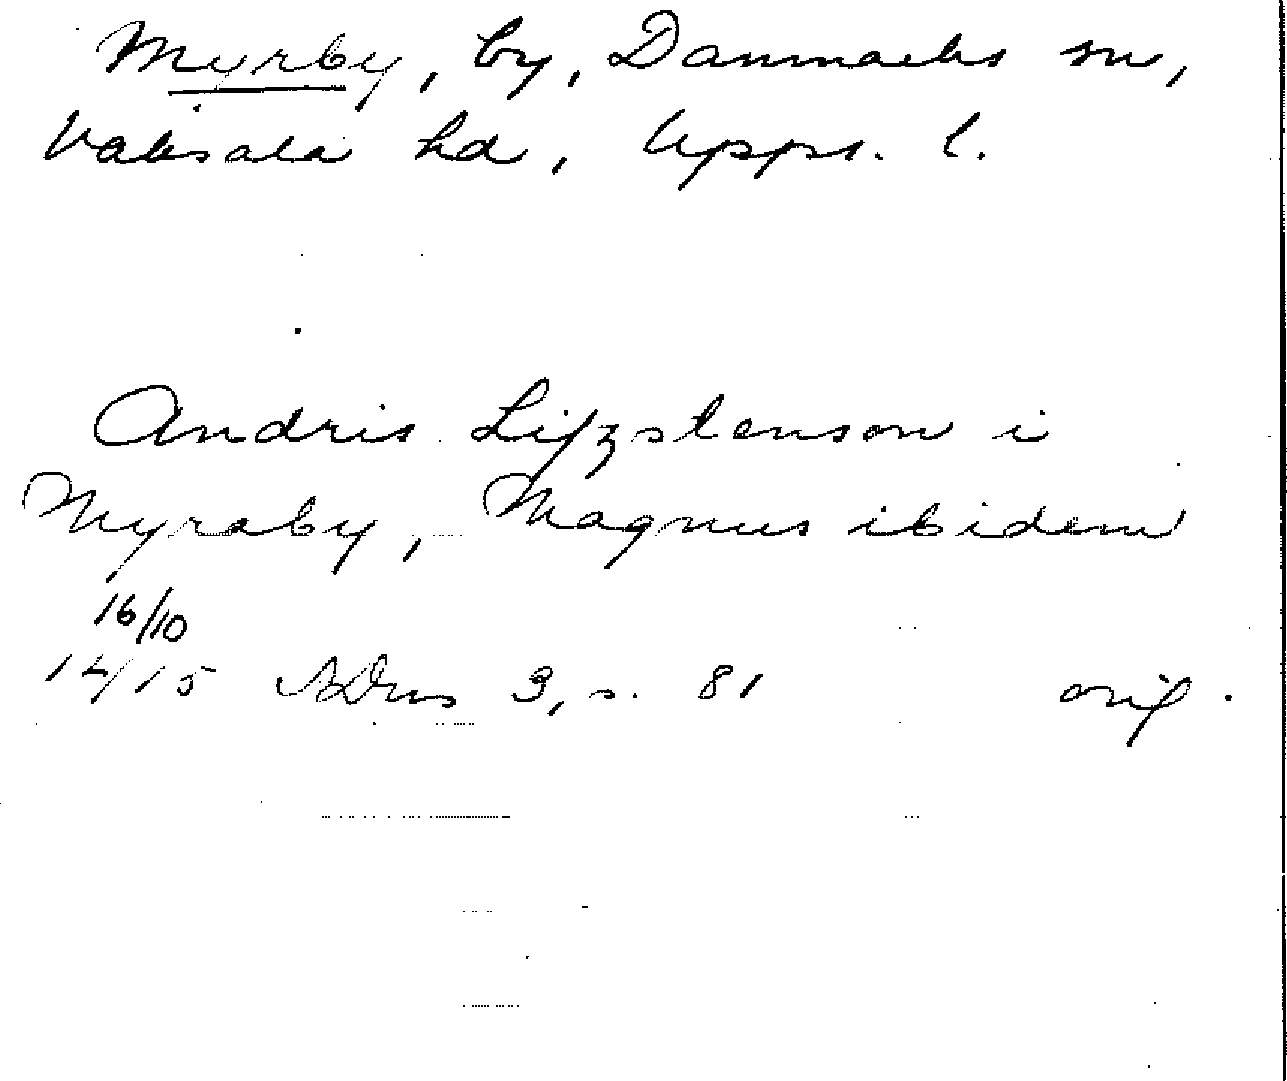 Myrby, by, Danmarks sn,
Vaksala hd, Upps. l.
Andris Lifzstenson i
Myraby, Magnus ibidem
16/10
1415 SDns 3, s. 81 orig.